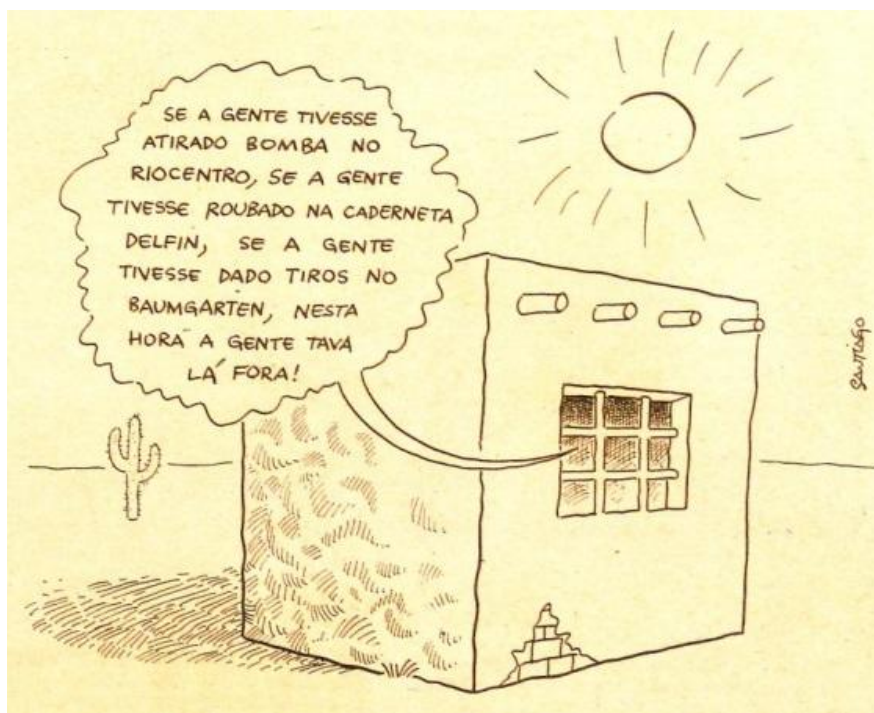 SE A GENTE TIVESSE
ATIRADO BOMBA NO
RIOCENTRO, SE A GENTE
TIVESSE ROUBADO NA CADERNETA
DELFIN, SE A GENTE
TIVESSE DADO TIROS NO
BAUMGARTEN, NESTA
HORA A GENTE TAVA
LÁ FORA!
SANTIAGO